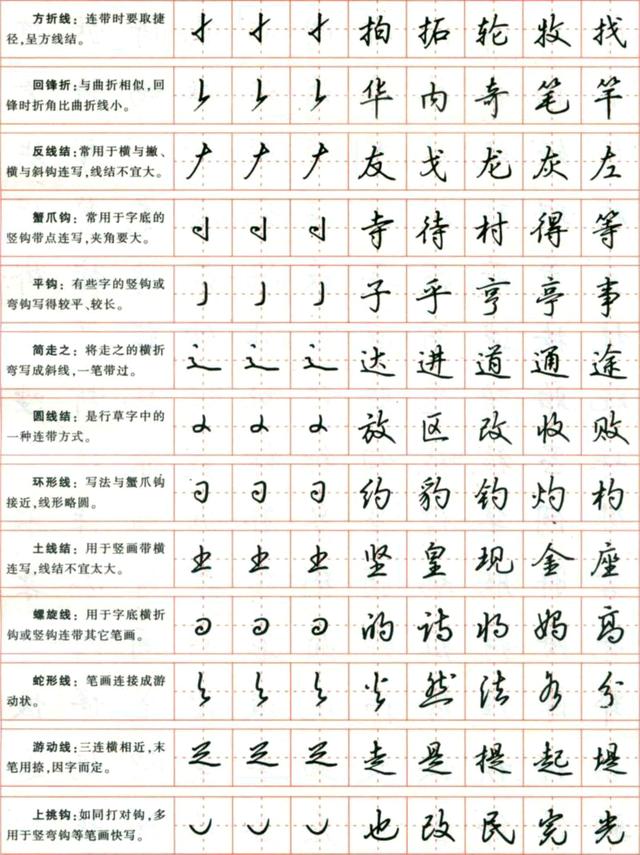 方折线：连带时要取捷 拍 拓 轮 牧 找
径，呈方线结。
回锋折：与曲折相似，回 华 内 奇 笔 竿
锋时折角比曲折线小。
反线结：常用于横与撇、 友 戈 龙 灰 左
横与斜钩连写，线结不宜大。
蟹爪钩：常用于字底的 寺 待 村 得 等
竖钩带点连写，夹角要大。
平钩：有些字的竖钩或 子 乎 亨 亭 事
弯钩写得较平、较长。
简走之：将走之的横折 达 进 道 通 途
弯写成斜线，一笔带过。
圆线结：是行草字中的 放 区 改 收 败
一种连带方式。
环形线：写法与蟹爪钩 约 豹 钓 灼 杓
接近，线形略圆。
土线结：用于竖画带横 坚 皇 现 金 座
连写，线结不宜太大。
螺旋线：用于字底横折 的 诗 将 妈 高
钩或竖钩连带其它笔画。
蛇形线：笔画连接成游 火 然 法 务 分
动状。
游动线：三连横相近，末 走 是 提 起 堤
笔用捺，因字而定。
上挑钩：如同打对钩，多 也 改 民 完 光
用于竖弯钩等笔画快写。